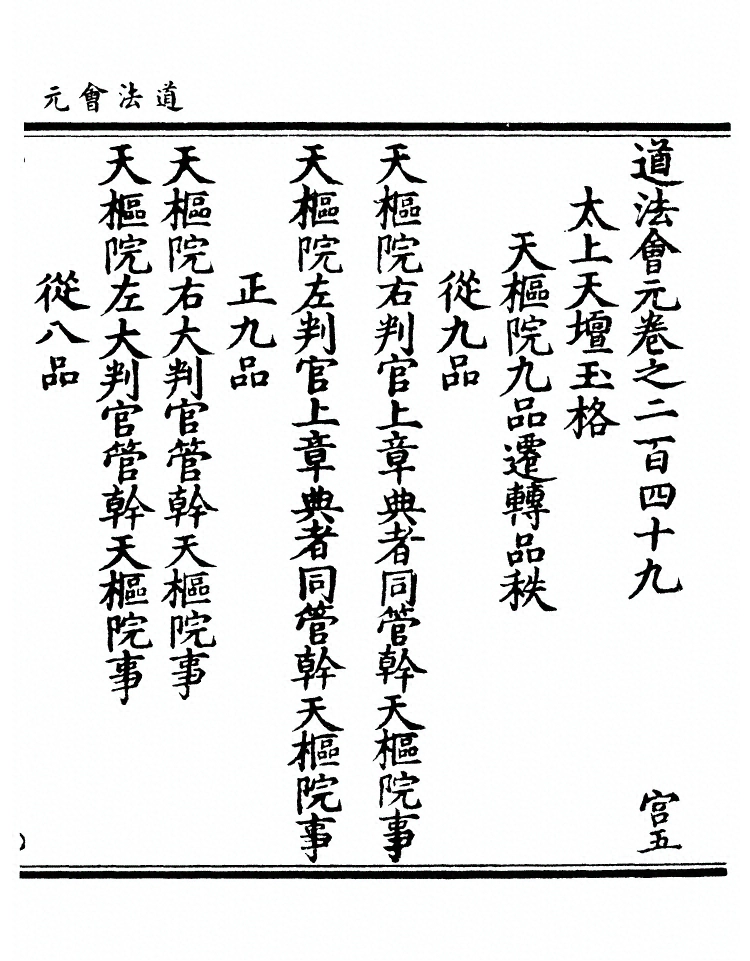 道法會元
道法會元卷之二百四十九 宮五
太上天壇玉格
天樞院九品遷轉品秩
從九品
天樞院右判官上章典者同管幹天樞院事
天樞院左判官上章典者同管幹天樞院事
正九品
天樞院右大判官管幹天樞院事
天樞院左大判官管幹天樞院事
從八品